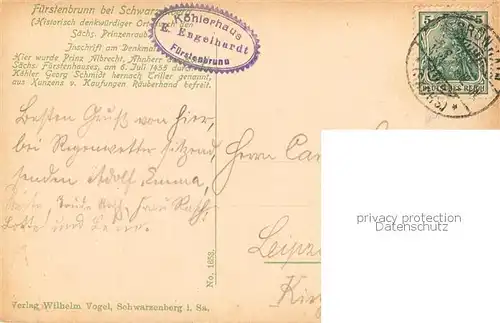 Fürstenbrunn bei Schwarzen
(Historisch denkwürdiger Ort
den
Sächs. Prinzenraub
Inschrift am Denkmal
Hier wurde Prinz Albrecht, Ahnherr
Sächs. Fürstenhauses, am 8. Juli 1455 dur
Köhler Georg Schmidt hernach Triller genannt,
aus Kunzens v. Kaufungen Räuberhand befreit.
Köhlerhaus
E. Engelhardt
Fürstenbrunn
5 5
DEUTSCHES REICH
Besten Gruß von hier,
bei Regenwetter sitzend
senden Adolf, Emma,
Lotte und
Herrn Car
Leipz
No. 1653.
privacy protection
Datenschutz
Verlag Wilhelm Vogel, Schwarzenberg i. Sa.